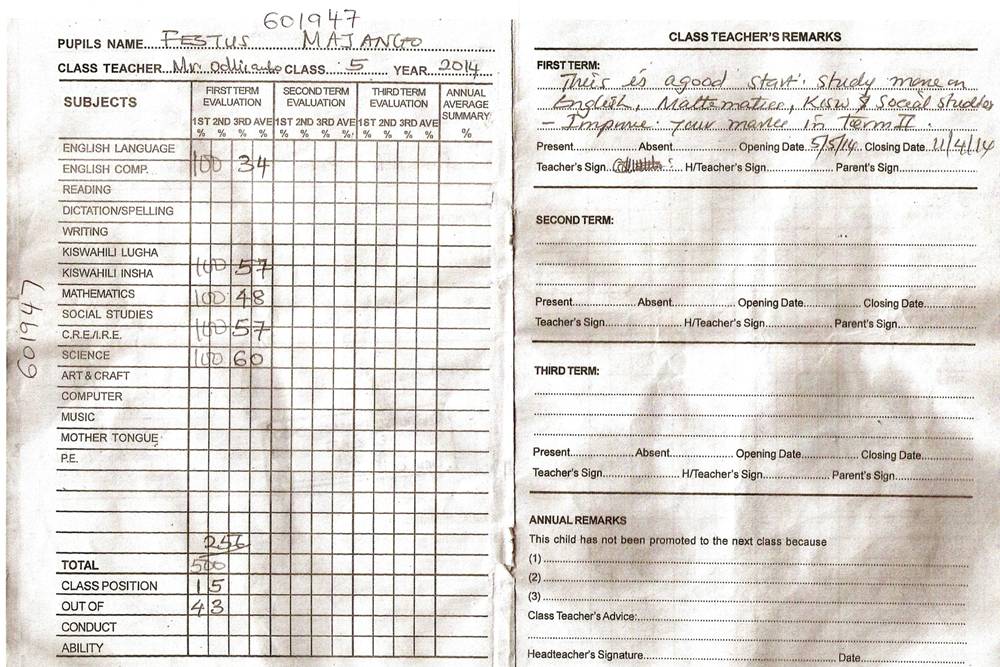 601947
PUPILS NAME FESTUS MAJANGO
CLASS TEACHER Mr. CLASS 5 YEAR 2014
SUBJECTS
FIRST TERM EVALUATION
SECOND TERM EVALUATION
THIRD TERM EVALUATION
ANNUAL AVERAGE SUMMARY
1ST 2ND 3RD AVE 1ST 2ND 3RD AVE 1ST 2ND 3RD AVE
% % % % % % % % % % % % %
ENGLISH LANGUAGE
ENGLISH COMP. 100 34
READING
DICTATION/SPELLING
WRITING
KISWAHILI LUGHA
KISWAHILI INSHA 100 57
MATHEMATICS 100 48
SOCIAL STUDIES
C.R.E./I.R.E. 100 57
SCIENCE 100 60
ART & CRAFT
COMPUTER
MUSIC
MOTHER TONGUE
P.E.
256
TOTAL 500
CLASS POSITION 15
OUT OF 43
CONDUCT
ABILITY
601947
CLASS TEACHER'S REMARKS
FIRST TERM:
This is a good start. study more on
English, Mathematics, Kisw & Social studies
- Improve your marks in term II.
Present Absent Opening Date 5/5/14 Closing Date 11/4/14
Teacher's Sign H/Teacher's Sign Parent's Sign
SECOND TERM:
Present Absent Opening Date Closing Date
Teacher's Sign H/Teacher's Sign Parent's Sign
THIRD TERM:
Present Absent Opening Date Closing Date
Teacher's Sign H/Teacher's Sign Parent's Sign
ANNUAL REMARKS
This child has not been promoted to the next class because
(1)
(2)
(3)
Class Teacher's Advice:
Headteacher's Signature Date